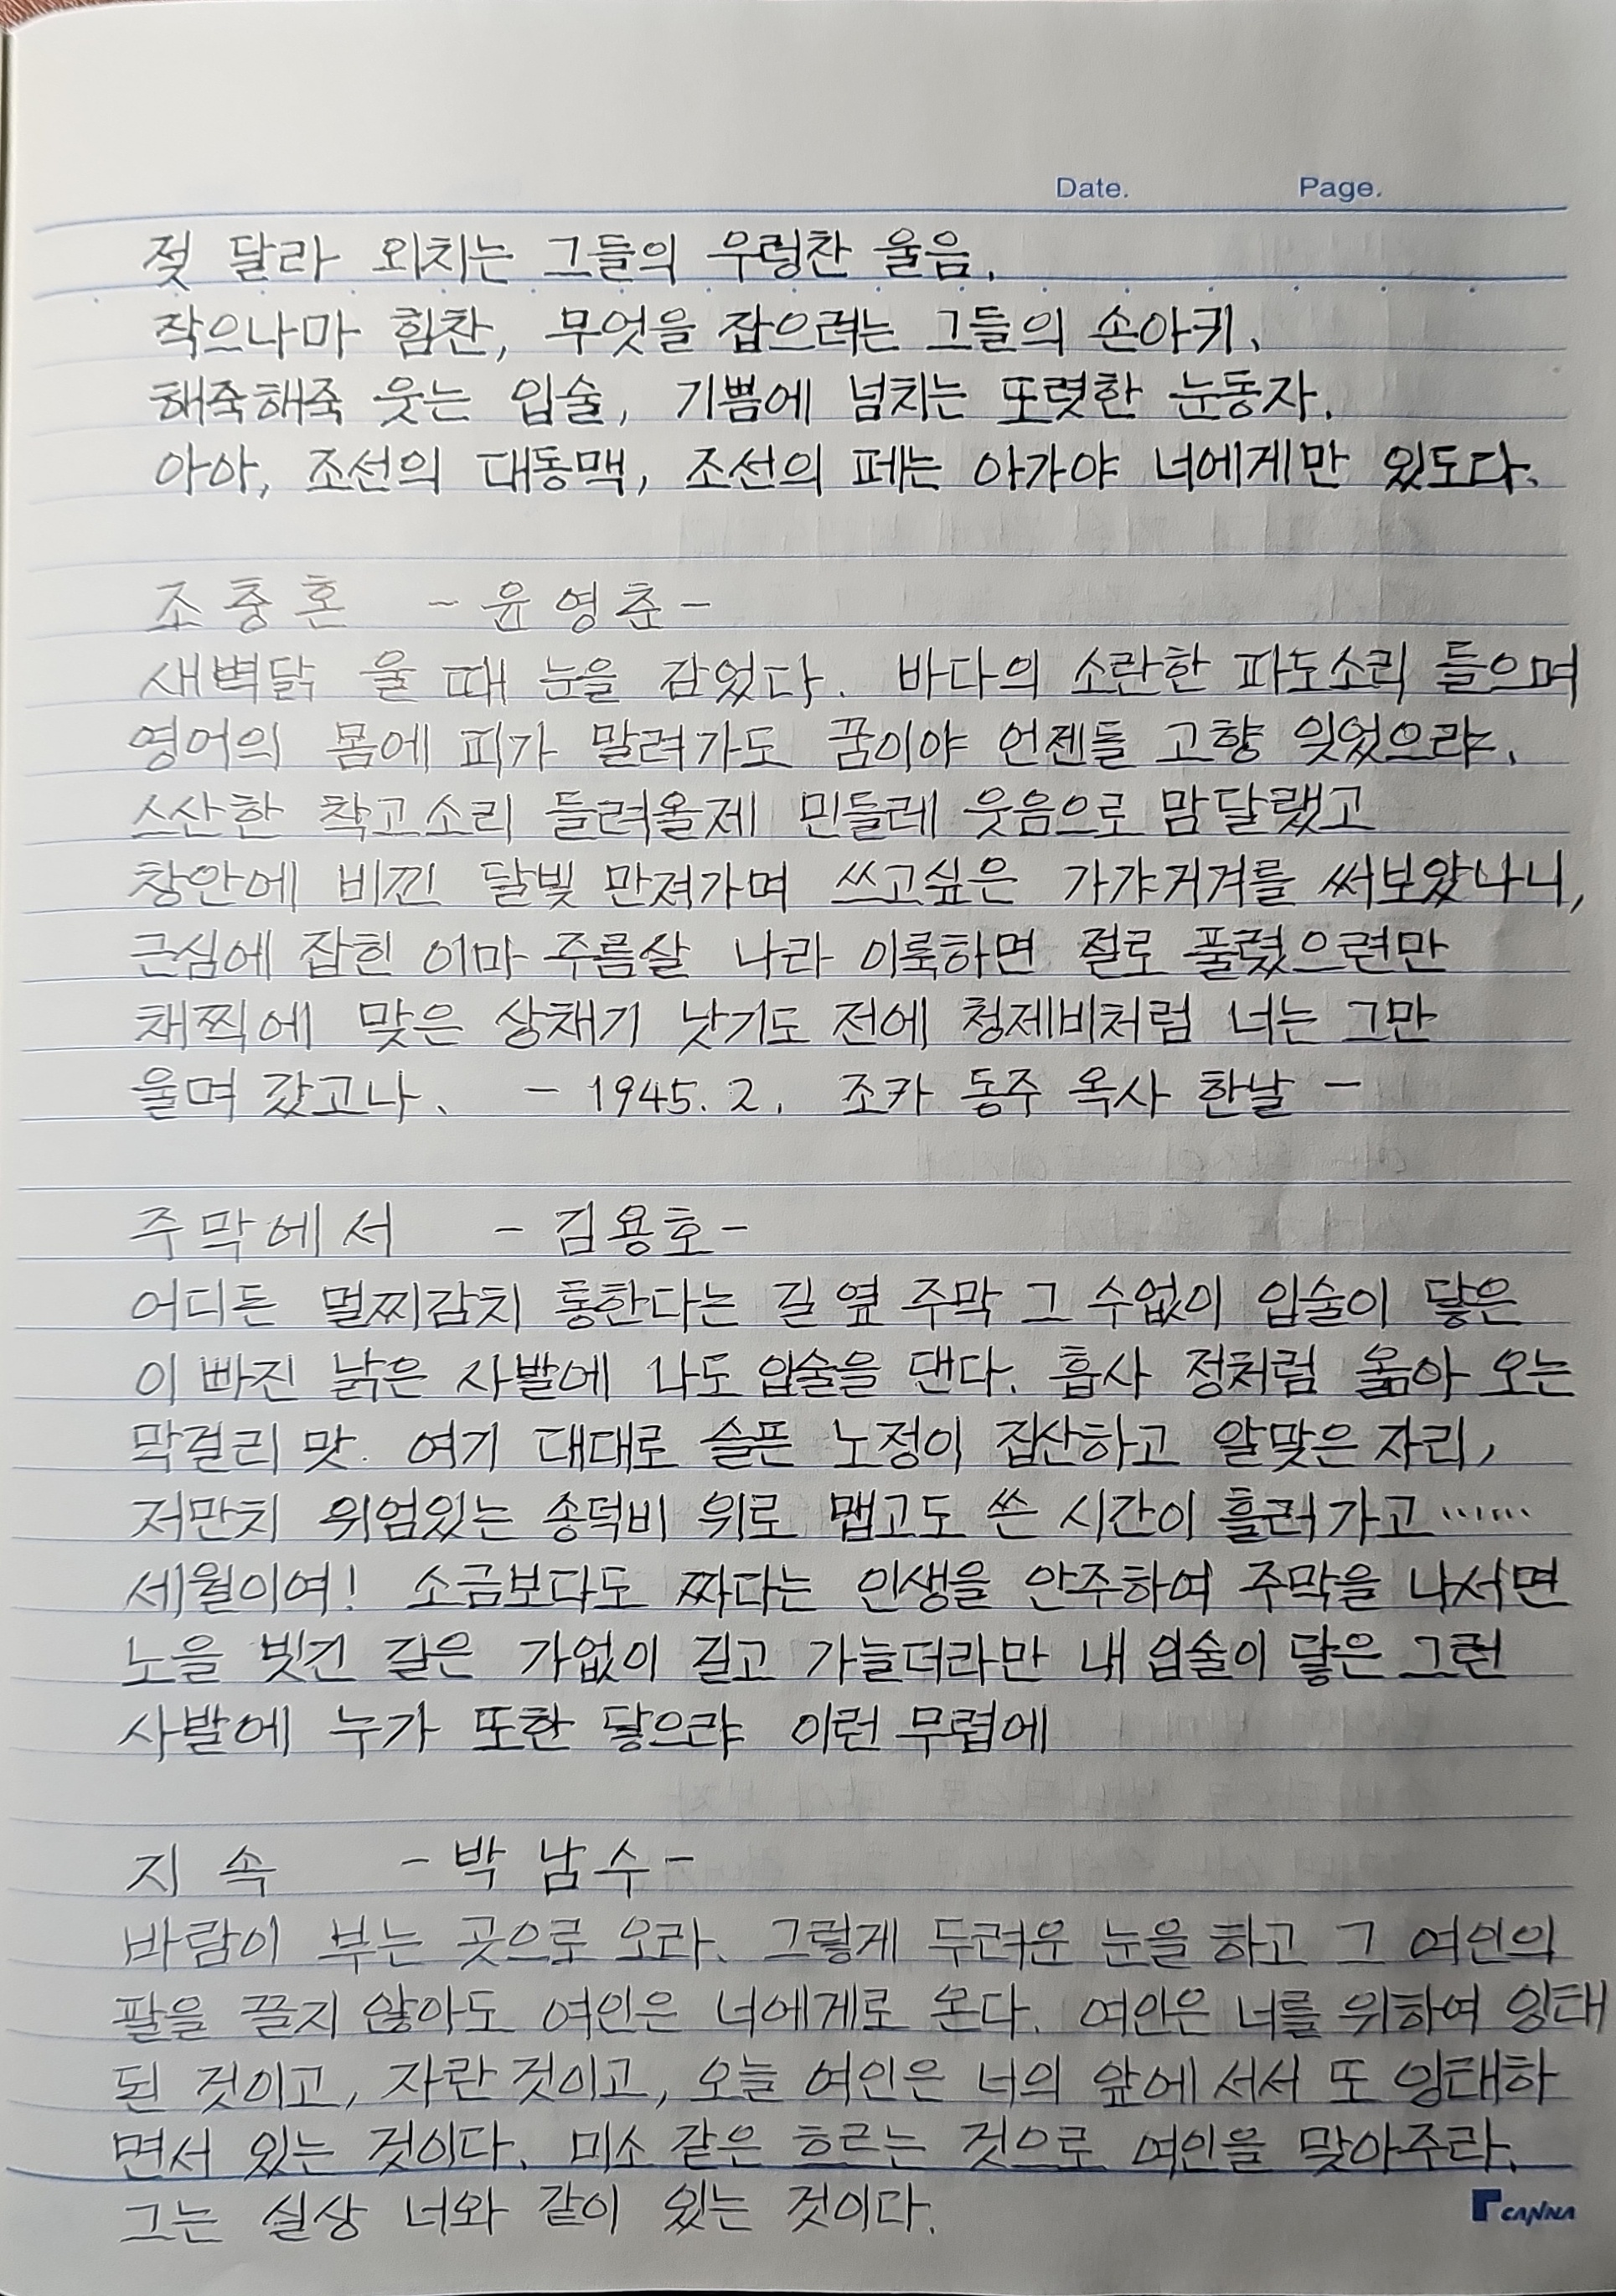 Date. Page.
젖 달라 외치는 그들의 우렁찬 울음.
작으나마 힘찬, 무엇을 잡으려는 그들의 손아키.
해죽해죽 웃는 입술, 기쁨에 넘치는 또렷한 눈동자.
아아, 조선의 대동맥, 조선의 페는 아가야 너에게만 있도다.
조충혼 -윤영춘-
새벽닭 울 때 눈을 감았다. 바다의 소란한 파도소리 들으며
영어의 몸에 피가 말려가도 꿈이야 언젠들 고향 잊었으랴.
스산한 착고소리 들려올제 민들레 웃음으로 맘달랬고
창안에 비낀 달빛 만져가며 쓰고싶은 가갸거겨를 써보았나니,
근심에 잡힌 이마 주름살 나라 이룩하면 절로 풀렸으련만
채찍에 맞은 상채기 낫기도 전에 청제비처럼 너는 그만
울며 갔고나. - 1945. 2. 조카 동주 옥사 한날 -
주막에서 -김용호-
어디든 멀찌감치 통한다는 길 옆 주막 그 수없이 입술이 닿은
이 빠진 낡은 사발에 나도 입술을 댄다. 흡사 정처럼 옮아 오는
막걸리 맛. 여기 대대로 슬픈 노정이 집산하고 알맞은 자리,
저만치 위엄있는 송덕비 위로 맵고도 쓴 시간이 흘러가고……
세월이여! 소금보다도 짜다는 인생을 안주하여 주막을 나서면
노을 빗긴 길은 가없이 길고 가늘더라만 내 입술이 닿은 그런
사발에 누가 또한 닿으랴 이런 무렵에
지속 -박남수-
바람이 부는 곳으로 오라. 그렇게 두려운 눈을 하고 그 여인의
팔을 끌지 않아도 여인은 너에게로 온다. 여인은 너를 위하여 잉태
된 것이고, 자란 것이고, 오늘 여인은 너의 앞에 서서 또 잉태하
면서 있는 것이다. 미소 같은 흐르는 것으로 여인을 맞아주라.
그는 실상 너와 같이 있는 것이다.
CANNA